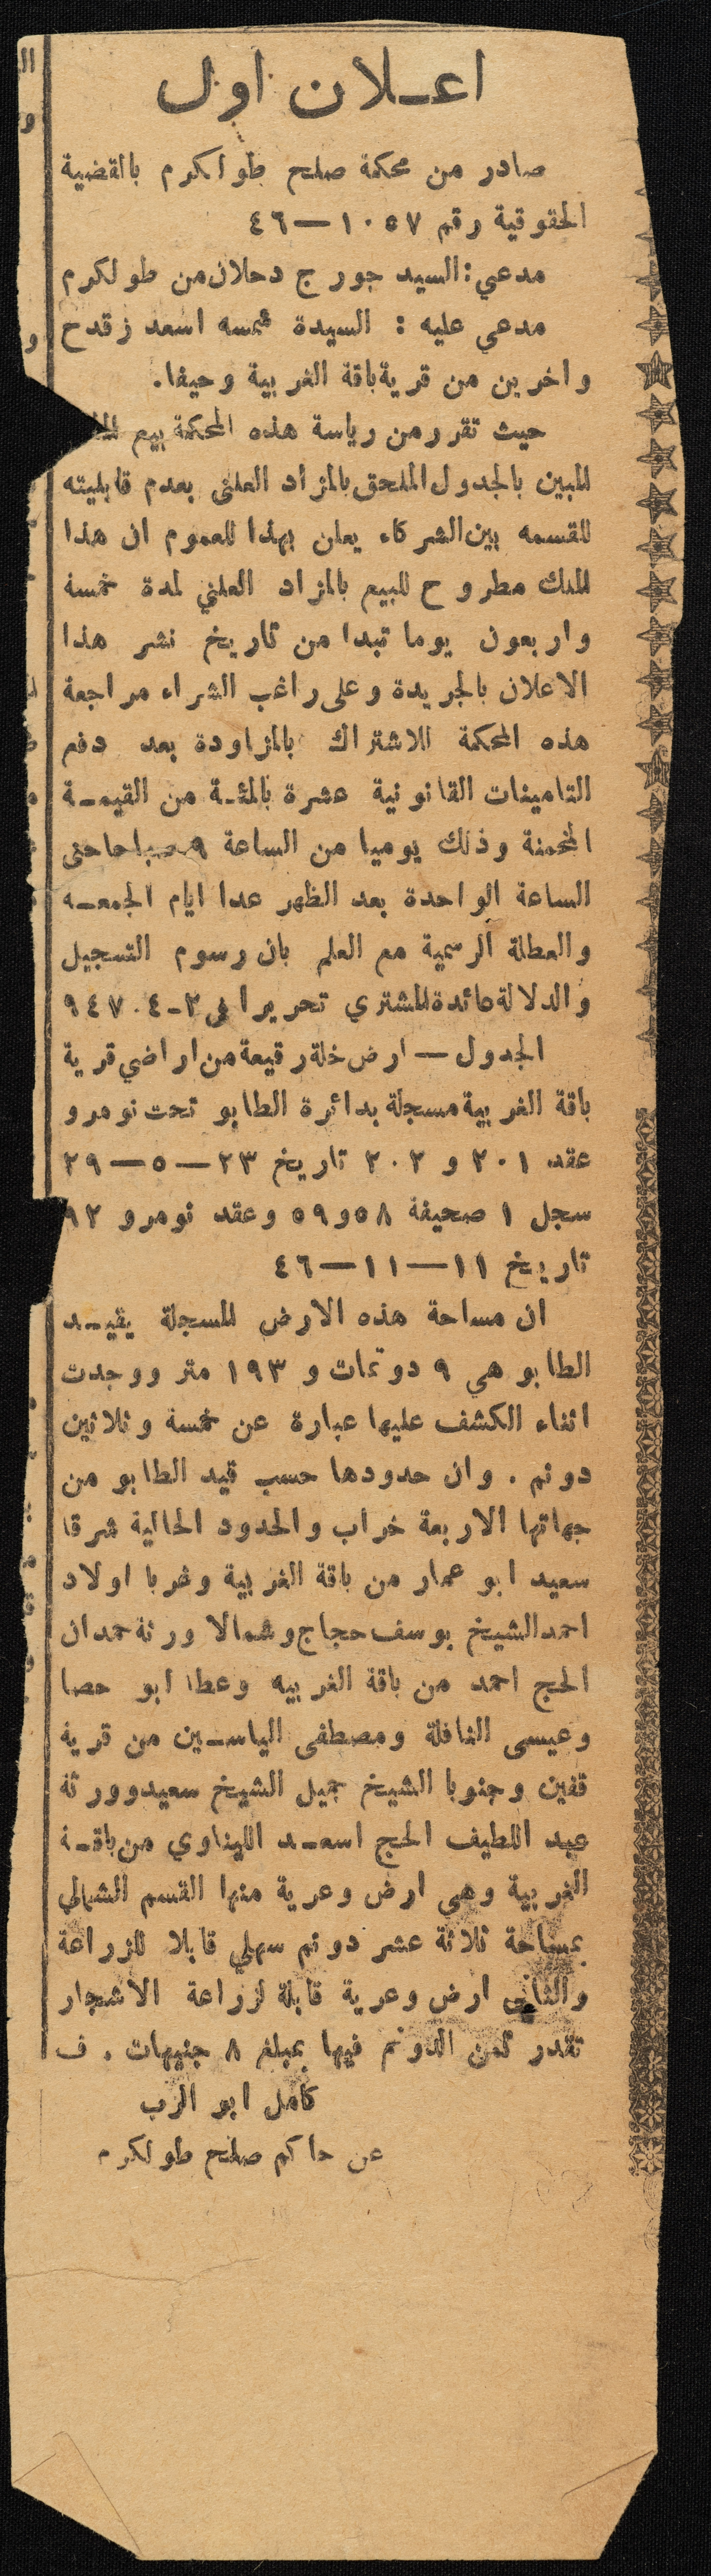 اعـلان اول
صادر من محكمة صلح طولكرم بالقضية
الحقوقية رقم ١٠٥٧—٤٦
مدعي: السيد جورج دحلان من طولكرم
مدعي عليه : السيدة شمسه اسعد زقدح
واخرين من قرية باقة الغربية وحيفا.
حيث تقرر من رياسة هذه المحكمة بيع
المبين بالجدول الملحق بالمزاد العلني بعدم قابليته
للقسمه بين الشركاء يعلن بهذا للعموم ان هذا
الملك مطروح للبيع بالمزاد العلني لمدة خمسة
واربعون يوما تبدا من تاريخ نشر هذا
الاعلان بالجريدة وعلى راغب الشراء مراجعة
هذه المحكمة للاشتراك بالمزاودة بعد دفع
التامينات القانونية عشرة بالمئـة من القيمـة
المخمنة وذلك يوميا من الساعة ٩ صباحا حتى
الساعة الواحدة بعد الظهر عدا ايام الجمعـه
والعطلة الرسمية مع العلم بان رسوم التسجيل
والدلالة عائدة للمشتري تحريرا في ٢-٤-٩٤٧
الجدول — ارض خلة رقيعة من اراضي قرية
باقة الغربية مسجلة بدائرة الطابو تحت نومرو
عقد ٢٠١ و ٢٠٢ تاريخ ٢٣—٥—٢٩
سجل ١ صحيفة ٥٨ و٥٩ وعقد نومرو ٩٢
تاريخ ١١—١١—٤٦
ان مساحة هذه الارض المسجلة يقيـد
الطابو هي ٩ دونمات و ١٩٣ متر ووجدت
اثناء الكشف عليها عبارة عن خمسة وثلاثين
دونم . وان حدودها حسب قيد الطابو من
جهاتها الاربعة خراب والحدود الحالية شرقا
سعيد ابو عمار من باقة الغربية وغربا اولاد
احمد الشيخ يوسف حجاج وشمالا ورثة حمدان
الحج احمد من باقة الغربيه وعطا ابو حصا
وعيسى النافلة ومصطفى الياسـين من قرية
قفين وجنوبا الشيخ جميل الشيخ سعيد وورثة
عبد اللطيف الحج اسعـد اللهناوي من باقـة
الغربية وهي ارض وعرية منها القسم الشمالي
بمساحة ثلاثة عشر دونم سهلي قابلا للزراعة
والثاني ارض وعرية قابلة لزراعة الاشجار
تقدر ثمن الدونم فيها بمبلغ ٨ جنيهات . ف
كامل ابو الرب
عن حاكم صلح طولكرم